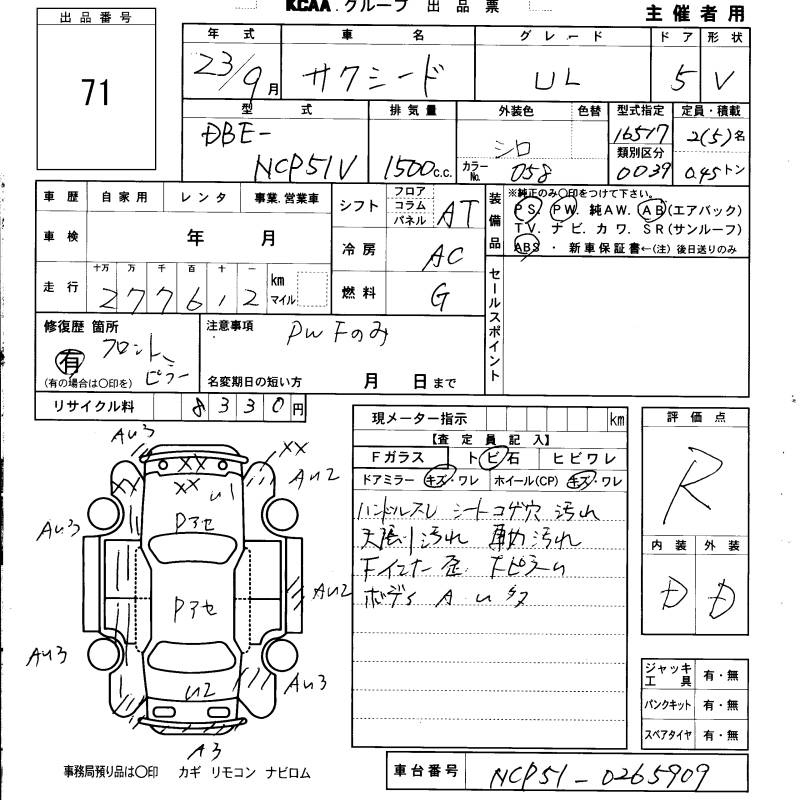 KCAA.グループ 出品票
主催者用
出品番号
71
年式 車名 グレード ドア 形状
23/9月 サクシード UL 5 V
型式 排気量 外装色 色替 型式指定 定員・積載
DBE-
NCP51V 1500c.c. シロ カラーNo. 058 16517 2(5)名
類別区分
0039 0.45トン
車歴 自家用 レンタ 事業.営業車
車検 年 月
走行 十万 万 千 百 十 一
277612 km マイル
シフト フロア コラム パネル AT
冷房 AC
燃料 G
装備品
※純正のみ○印をつけて下さい。
PS. PW. 純AW. AB(エアバック)
TV. ナビ. カワ. SR(サンルーフ)
ABS ・ 新車保証書←(注)後日送りのみ
セールスポイント
修復歴 箇所
有 フロント ピラー
(有の場合は○印を)
注意事項
PW Fのみ
名変期日の短い方 月 日まで
リサイクル料 8330円
現メーター指示 km
【査定員記入】
Fガラス トビ石 ヒビワレ
ドアミラー キズ・ワレ ホイール(CP) キズ・ワレ
ハンドルスレ シートコゲ穴 汚れ
天張り汚れ 内汚れ
Fインナー歪 Fピラーu
ボディ A u 多
評価点
R
内装 外装
D D
ジャッキ工具 有・無
パンクキット 有・無
スペアタイヤ 有・無
AU3 XX
XX AU2
XX XX U1
Pアセ
AU3
Pアセ AU2
AU3 U2 AU3
A3
事務局預り品は○印 カギ リモコン ナビロム
車台番号 NCP51-0265909